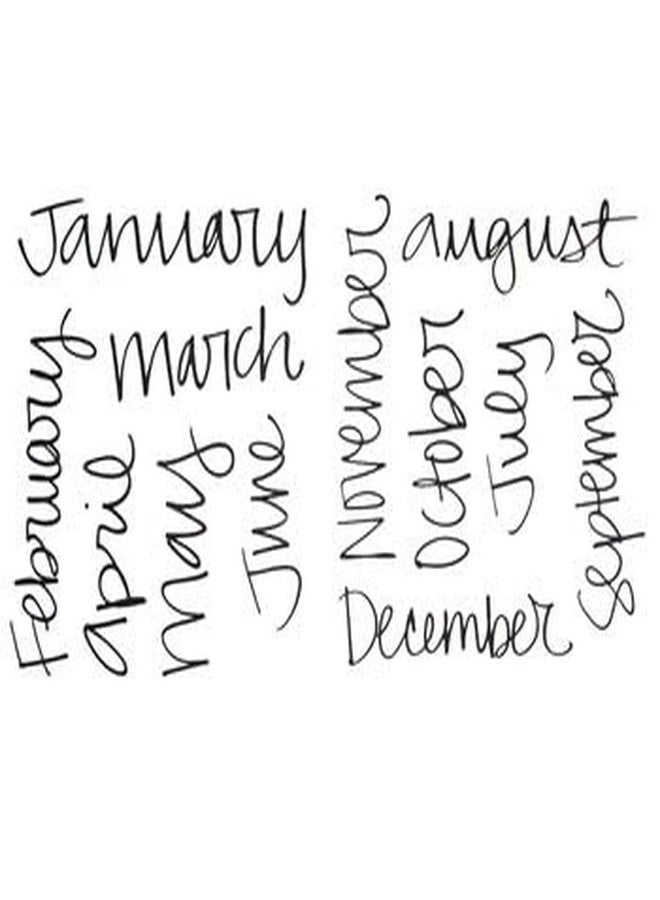 January
March
February
april
May
June
November
august
October
July
September
December